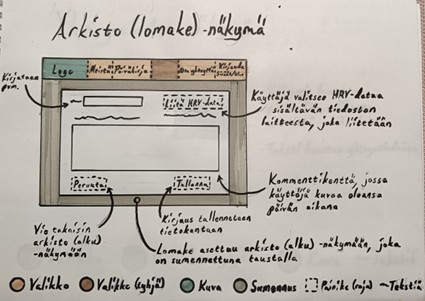 Arkisto (lomake) -näkymä
Logo
Meistä
Päiväkirja
Kirjaudu
Kirjataan
pvm.
Liitä HRV-data
Käyttäjä valitsee HRV-dataa
sisältävän tiedoston
laitteesta, joka liitetään
Peruuta
Tallenna
Kommenttikenttä, jossa
käyttäjä kuvaa oloansa
päivän aikana
Vie takaisin
arkisto (alku)
-näkymään
Kirjaus tallennetaan
tietokantaan
Lomake asettuu arkisto (alku) -näkymään, joka
on sumennettuna taustalla
Valikko
Valikko (tyhjä)
Kuva
Sumennus
Painike (raja)
Tekstiä